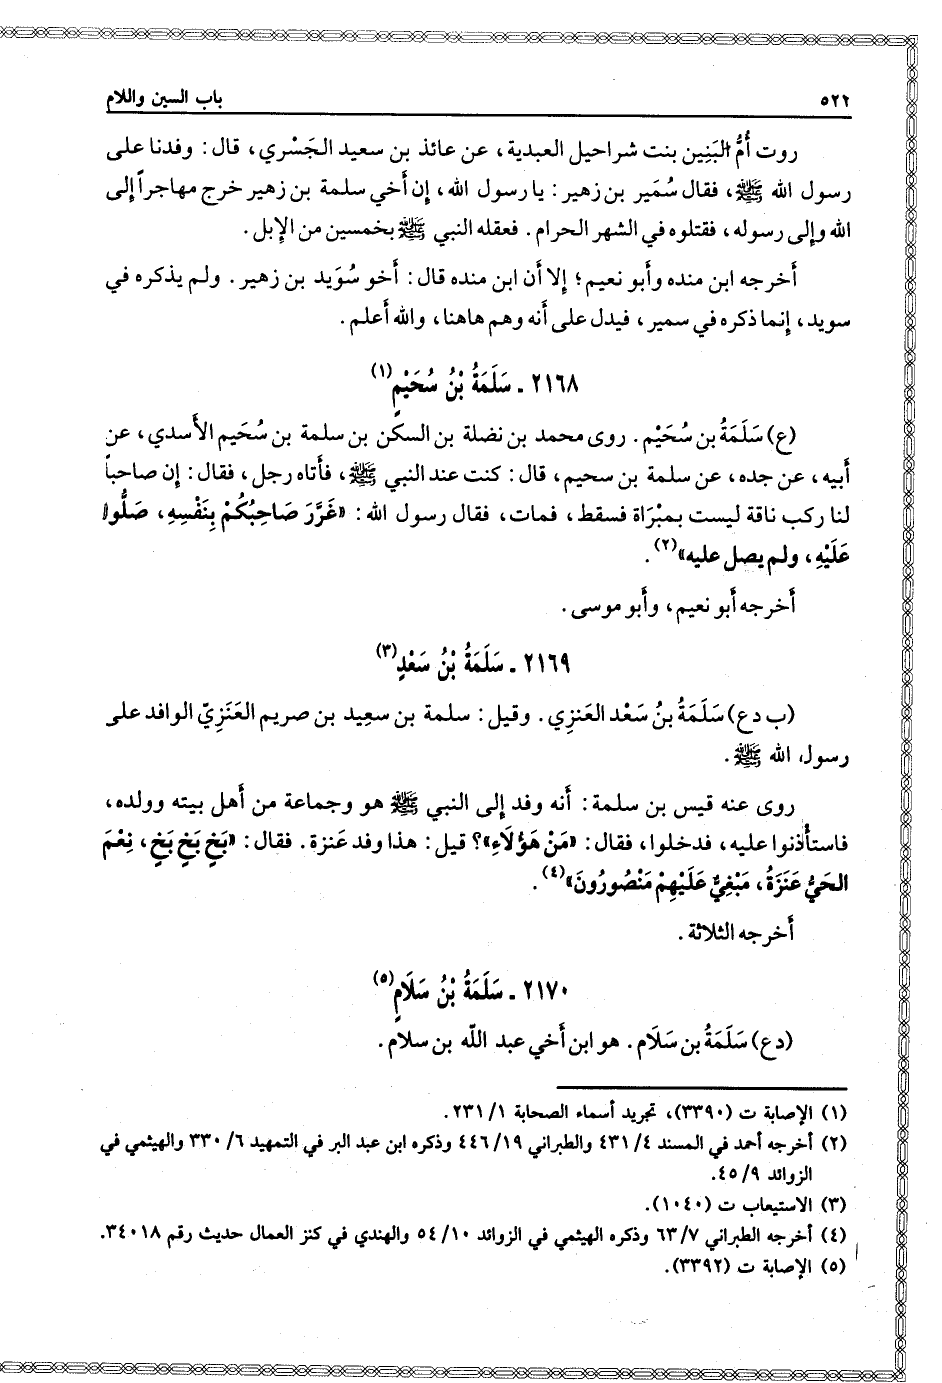 ٥٢٢ باب السين واللام
روت أُمُّ البَنِين بنت شراحيل العبدية، عن عائذ بن سعيد الجَسْري، قال: وفدنا على
رسول الله ﷺ، فقال سُمَير بن زهير: يا رسول الله، إن أخي سلمة بن زهير خرج مهاجراً إلى
الله وإلى رسوله، فقتلوه في الشهر الحرام. فعقله النبي ﷺ بخمسين من الإبل.
أخرجه ابن منده وأبو نعيم؛ إلا أن ابن منده قال: أخو سُوَيد بن زهير. ولم يذكره في
سويد، إنما ذكره في سمير، فيدل على أنه وهم هاهنا، والله أعلم.
٢١٦٨ ـ سَلَمَةُ بْنُ سُحَيْمٍ(١)
(ع) سَلَمَةُ بن سُحَيْم. روى محمد بن نضلة بن السكن بن سلمة بن سُحَيم الأسدي، عن
أبيه، عن جده، عن سلمة بن سحيم، قال: كنت عند النبي ﷺ، فأتاه رجل، فقال: إن صاحباً
لنا ركب ناقة ليست بمبْرَاة فسقط، فمات، فقال رسول الله: «غَرَّرَ صَاحِبُكُمْ بِنَفْسِهِ، صَلُّوا
عَلَيْهِ، ولم يصل عليه»(٢).
أخرجه أبو نعيم، وأبو موسى.
٢١٦٩ ـ سَلَمَةُ بْنُ سَعْدٍ(٣)
(ب دع) سَلَمَةُ بنُ سَعْد العنزي. وقيل: سلمة بن سعِيد بن صريم العَنَزِيّ الوافد على
رسول الله ﷺ.
روى عنه قيس بن سلمة: أنه وفد إلى النبي ﷺ هو وجماعة من أهل بيته وولده،
فاستأذنوا عليه، فدخلوا، فقال: «مَنْ هَؤُلَاءِ»؟ قيل: هذا وفد عَنزة. فقال: «بَخٍ بَخٍ بَخٍ، نِعْمَ
الحَيُّ عَنَزَةُ، مَبْغِيٌّ عَلَيْهِمْ مَنْصُورُونَ»(٤).
أخرجه الثلاثة.
٢١٧٠ ـ سَلَمَةُ بْنُ سَلَامٍ(٥)
(دع) سَلَمَةُ بن سَلَام. هو ابن أخي عبد اللّه بن سلام.
(١) الإصابة ت (٣٣٩٠)، تجريد أسماء الصحابة ١/ ٢٣١.
(٢) أخرجه أحمد في المسند ٤/ ٤٣١ والطبراني ١٩/ ٤٤٦ وذكره ابن عبد البر في التمهيد ٦/ ٣٣٠ والهيثمي في
الزوائد ٩/ ٤٥.
(٣) الاستيعاب ت (١٠٤٠).
(٤) أخرجه الطبراني ٧/ ٦٣ وذكره الهيثمي في الزوائد ١٠/ ٥٤ والهندي في كنز العمال حديث رقم ٣٤٠١٨.
(٥) الإصابة ت (٣٣٩٢).